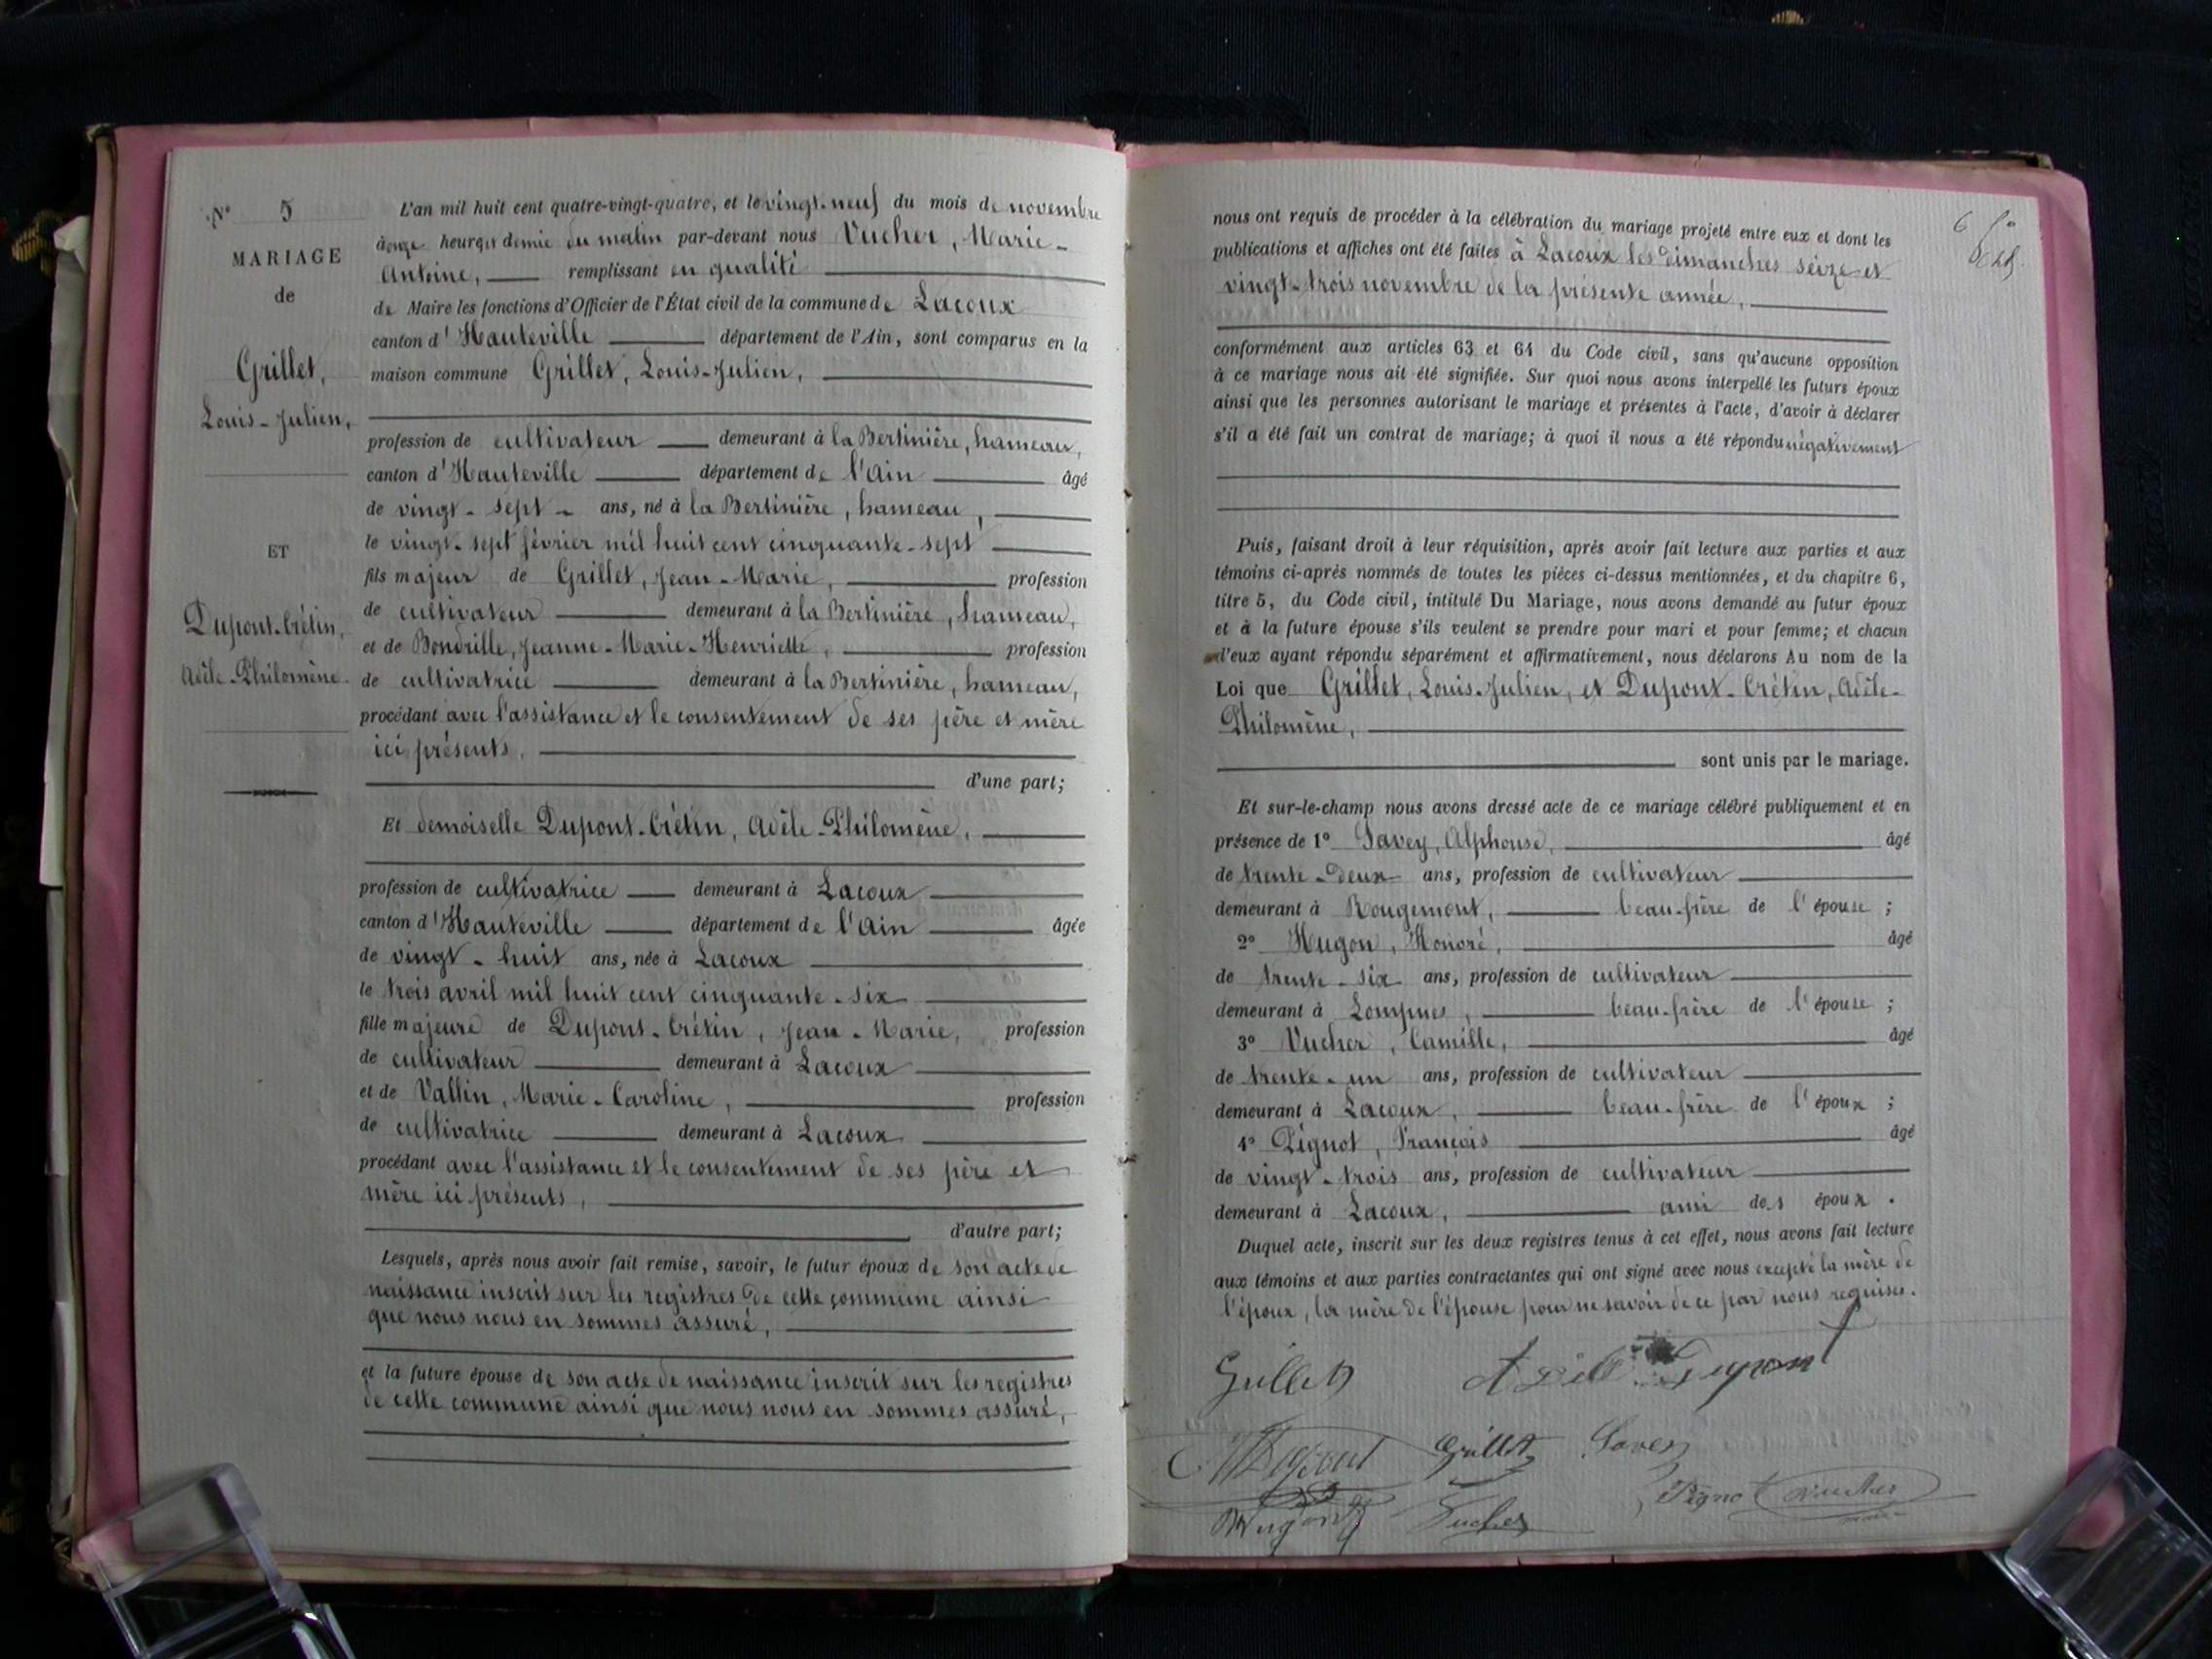 N° 5
MARIAGE
de
Grillet,
Louis-Julien,
ET
Dupont-Crétin,
Adèle-Philomène.
L'an mil huit cent quatre-vingt-quatre, et le vingt-neuf du mois de novembre
à onze heures et demie du matin par-devant nous Vucher, Marie-
Antoine, remplissant en qualité
de Maire les fonctions d'Officier de l'État civil de la commune de Lacoux
canton d'Hauteville département de l'Ain, sont comparus en la
maison commune Grillet, Louis-Julien,
profession de cultivateur demeurant à la Bertinière, hameau,
canton d'Hauteville département de l'Ain âgé
de vingt-sept ans, né à la Bertinière, hameau,
le vingt-sept février mil huit cent cinquante-sept
fils majeur de Grillet, Jean-Marie, profession
de cultivateur demeurant à la Bertinière, hameau,
et de Bondrille, Jeanne-Marie-Henriette, profession
de cultivatrice demeurant à la Bertinière, hameau,
procédant avec l'assistance et le consentement de ses père et mère
ici présents,
d'une part;
Et demoiselle Dupont-Crétin, Adèle-Philomène,
profession de cultivatrice demeurant à Lacoux
canton d'Hauteville département de l'Ain âgée
de vingt-huit ans, née à Lacoux
le trois avril mil huit cent cinquante-six
fille majeure de Dupont-Crétin, Jean-Marie, profession
de cultivateur demeurant à Lacoux
et de Vallin, Marie-Caroline, profession
de cultivatrice demeurant à Lacoux
procédant avec l'assistance et le consentement de ses père et
mère ici présents,
d'autre part;
Lesquels, après nous avoir fait remise, savoir, le futur époux de son acte de
naissance inscrit sur les registres de cette commune ainsi
que nous nous en sommes assuré,
et la future épouse de son acte de naissance inscrit sur les registres
de cette commune ainsi que nous nous en sommes assuré,
6
nous ont requis de procéder à la célébration du mariage projeté entre eux et dont les
publications et affiches ont été faites à Lacoux les dimanches seize et
vingt-trois novembre de la présente année,
conformément aux articles 63 et 64 du Code civil, sans qu'aucune opposition
à ce mariage nous ait été signifiée. Sur quoi nous avons interpellé les futurs époux
ainsi que les personnes autorisant le mariage et présentes à l'acte, d'avoir à déclarer
s'il a été fait un contrat de mariage; à quoi il nous a été répondu négativement
Puis, faisant droit à leur réquisition, après avoir fait lecture aux parties et aux
témoins ci-après nommés de toutes les pièces ci-dessus mentionnées, et du chapitre 6,
titre 5, du Code civil, intitulé Du Mariage, nous avons demandé au futur époux
et à la future épouse s'ils veulent se prendre pour mari et pour femme; et chacun
d'eux ayant répondu séparément et affirmativement, nous déclarons Au nom de la
Loi que Grillet, Louis-Julien, et Dupont-Crétin, Adèle-
Philomène,
sont unis par le mariage.
Et sur-le-champ nous avons dressé acte de ce mariage célébré publiquement et en
présence de 1° Savey, Alphonse, âgé
de trente-deux ans, profession de cultivateur
demeurant à Rougemont, beau-frère de l'épouse;
2° Hugon, Honoré, âgé
de trente-six ans, profession de cultivateur
demeurant à Lompnes, beau-frère de l'épouse;
3° Vucher, Camille, âgé
de trente-un ans, profession de cultivateur
demeurant à Lacoux, beau-frère de l'époux;
4° Pignot, François âgé
de vingt-trois ans, profession de cultivateur
demeurant à Lacoux, ami des époux.
Duquel acte, inscrit sur les deux registres tenus à cet effet, nous avons fait lecture
aux témoins et aux parties contractantes qui ont signé avec nous excepté la mère de
l'époux, la mère de l'épouse pour ne savoir de ce par nous requises.
Grillet Adèle Dupont
Dupont Grillet Savey
Hugon Vucher Pignot Vucher